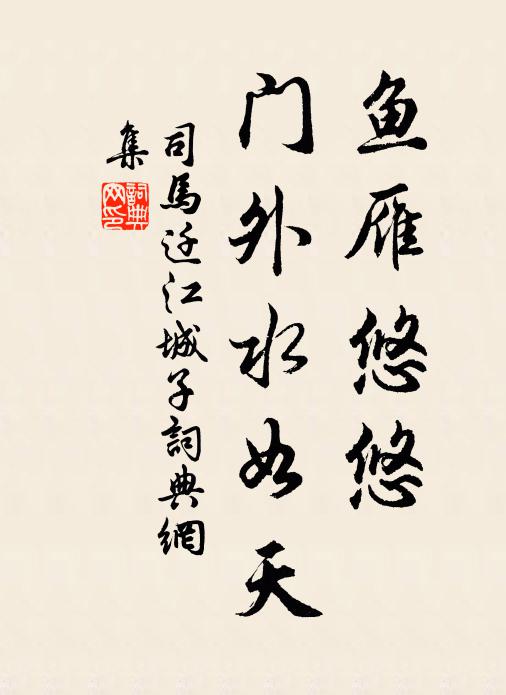 鱼雁悠悠
门外水如天
司馬迁江城子詞典網
集
詞典网印